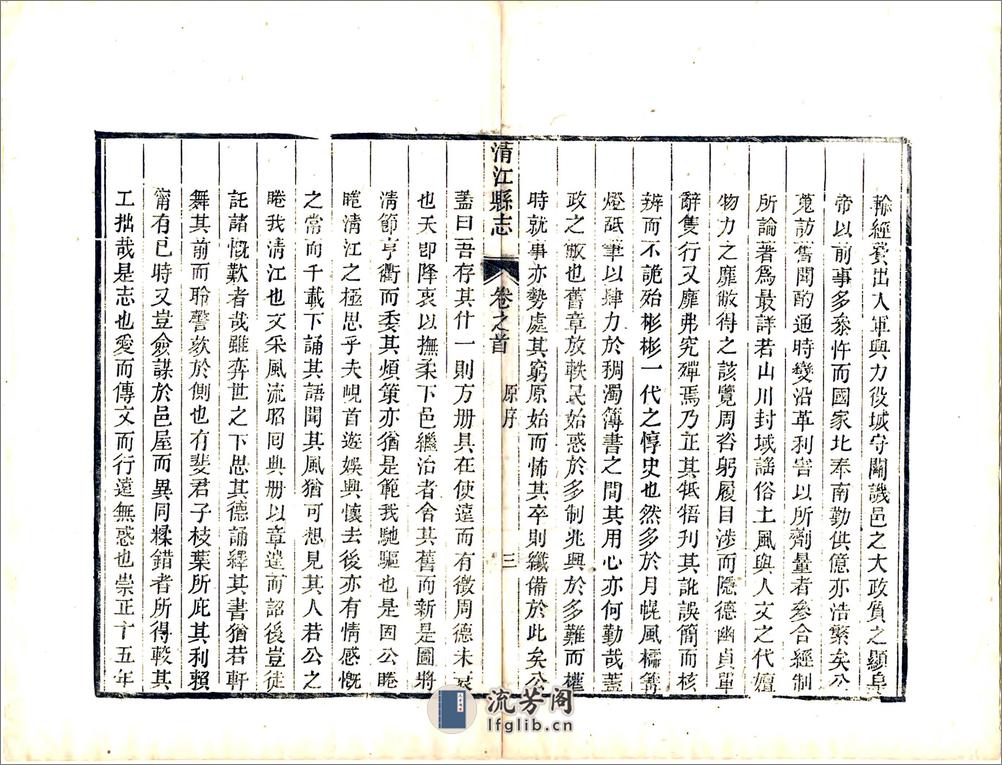 輸經費出入軍興力役城守關譏邑之大政質之顯皇
帝以前事多忝忤而國家北奉南勤供億亦浩繁矣公
蒐訪舊聞酌通時變沿革利害以所劑量者參合經制
所論著爲最詳若山川封域謡俗土風與人文之代嬗
物力之靡敝得之該覽周咨躬履目涉而隱德幽貞單
辭隻行又靡弗究殫焉乃正其牴牾刋其訛誤簡而核
辨而不詭殆彬彬一代之惇史也然多於月幌風櫺篝
燈砥筆以肆力於稠濁簿書之間其用心亦何勤哉蓋
政之敝也舊章放軼民始惑於多制兆興於多難而權
時就事亦勢處其窮原始而怖其卒則纖備於此矣公
清江縣志
卷之首
原序
三
蓋曰吾存其什一則方册具在使遠而有徵周德未衰
也天卽降衷以撫柔下邑繼治者舍其舊而新是圖將
清節亨衢而委其煩策亦猶是範我馳驅也是固公睠
睠清江之極思乎夫峴首遊娛興懷去後亦有情感慨
之常而千載下誦其語聞其風猶可想見其人若公之
睠我清江也文采風流昭囘典册以章遑而詔後豈徒
託諸慨歎者哉雖弈世之下思其德誦繹其書猶若軒
舞其前而聆謦欬於側也有斐君子枝葉所庇其利賴
甯有已時又豈僉謀於邑屋而異同糅錯者所得較其
工拙哉是志也愛而傳文而行遠無惑也崇正十五年
流芳阁
lfglib.cn